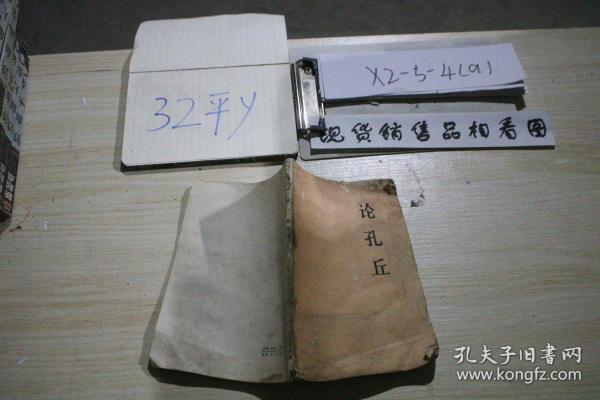 32平y
X2-5-4(9)
现货销售品相看图
论孔丘
孔夫子旧书网
www.kongfz.com